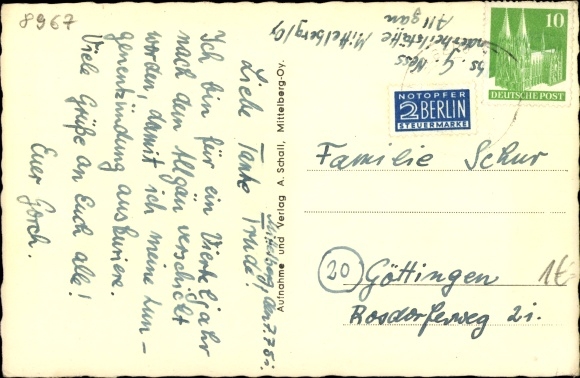 8967
Mittelberg, den 7.7.51.
Liebe Tante Trude!
Ich bin für ein Vierteljahr
nach dem Allgäu verschickt
worden, damit ich meine Lun-
genentzündung auskuriere.
Viele Grüße an Euch alle!
Euer Gorch.
Aufnahme und Verlag A. Schall, Mittelberg-Oy.
G. Hess
Kinderheilstätte Mittelberg/Oy
Allgäu
10
DEUTSCHE POST
NOTOPFER
2 BERLIN
STEUERMARKE
Familie Schur
20 Göttingen
Rosdorferweg 2i.
1€